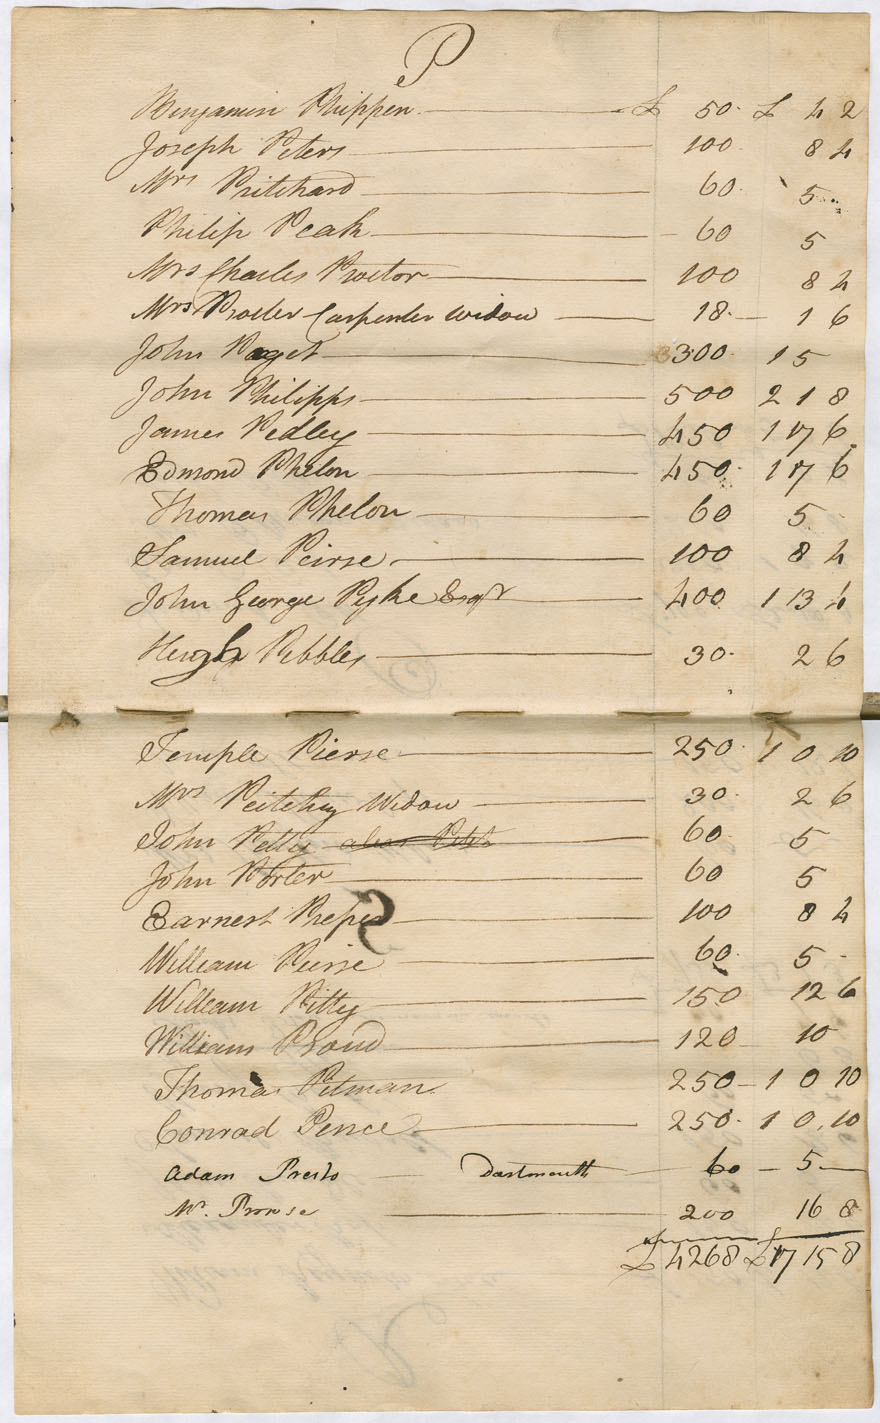 P
Benjamin Phippen £ 50 £ 4 2
Joseph Peters 100 8 4
Mrs Pritchard 60 5
Philip Peak 60 5
Mrs Charles Proctor 100 8 4
Mrs Procter Carpenter Widow 18 1 6
John Paget 300 1 5
John Philipps 500 2 1 8
James Pedley 450 1 17 6
Edmond Phelon 450 1 17 6
Thomas Phelon 60 5
Samuel Peirse 100 8 4
John George Pyke Esqr 400 1 13 4
Hugh Pebbles 30 2 6
Temple Pierse 250 1 0 10
Mrs Widow 30 2 6
John Petty alias 60 5
John Porter 60 5
Earnest 100 8 4
William Peirse 60 5
William Pitty 150 12 6
William Proud 120 10
Thomas Pitman 250 1 0 10
Conrad Pence 250 1 0 10
Adam Presto Dartmouth 60 5
Mr. Prowse 200 16 8
£ 4268 £ 17 15 8